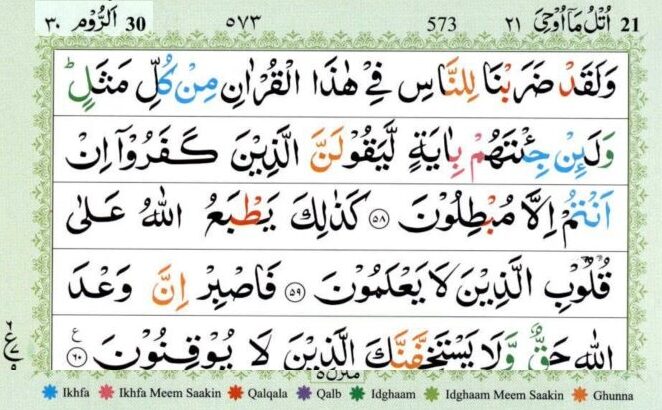 ٣٠ اَلرُّوْم 30 ٥٧٣ 573 ٢١ اُتْلُ مَاۤ اُوْحِیَ 21
وَلَقَدْ ضَرَبْنَا لِلنَّاسِ فِیْ هٰذَا الْقُرْاٰنِ مِنْ كُلِّ مَثَلٍ ؕ
وَلَئِنْ جِئْتَهُمْ بِاٰیَةٍ لَّیَقُوْلَنَّ الَّذِیْنَ كَفَرُوْۤا اِنْ
اَنْتُمْ اِلَّا مُبْطِلُوْنَ ٥٨ كَذٰلِكَ یَطْبَعُ اللّٰهُ عَلٰی
قُلُوْبِ الَّذِیْنَ لَا یَعْلَمُوْنَ ٥٩ فَاصْبِرْ اِنَّ وَعْدَ
اللّٰهِ حَقٌّ وَّلَا یَسْتَخِفَّنَّكَ الَّذِیْنَ لَا یُوْقِنُوْنَ ٦٠ ع
منزل ٥
Ikhfa Ikhfa Meem Saakin Qalqala Qalb Idghaam Idghaam Meem Saakin Ghunna